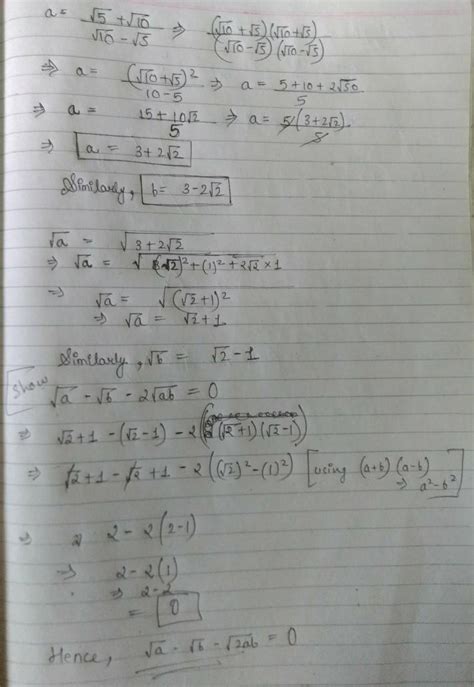 a = (√5 + √10)/(√10 − √5) ⇒ (√10 + √5)(√10 + √5)/(√10 − √5)(√10 − √5)
⇒ a = (√10 + √5)²/(10 − 5) ⇒ a = (5 + 10 + 2√50)/5
⇒ a = (15 + 10√2)/5 ⇒ a = 5(3 + 2√2)/5
⇒ a = 3 + 2√2
Similarly, b = 3 − 2√2
√a = √(3 + 2√2)
⇒ √a = √((√2)² + (1)² + 2√2 × 1)
⇒ √a = √((√2 + 1)²)
⇒ √a = √2 + 1
Similarly, √b = √2 − 1
Show
√a − √b − 2√ab = 0
⇒ √2 + 1 − (√2 − 1) − 2((√2 + 1)(√2 − 1))
⇒ √2 + 1 − √2 + 1 − 2((√2)² − (1)²) [using (a+b)(a−b) ⇒ a² − b²]
⇒ 2 − 2(2 − 1)
⇒ 2 − 2(1)
⇒ 2 − 2
= 0
Hence, √a − √b − √2ab = 0